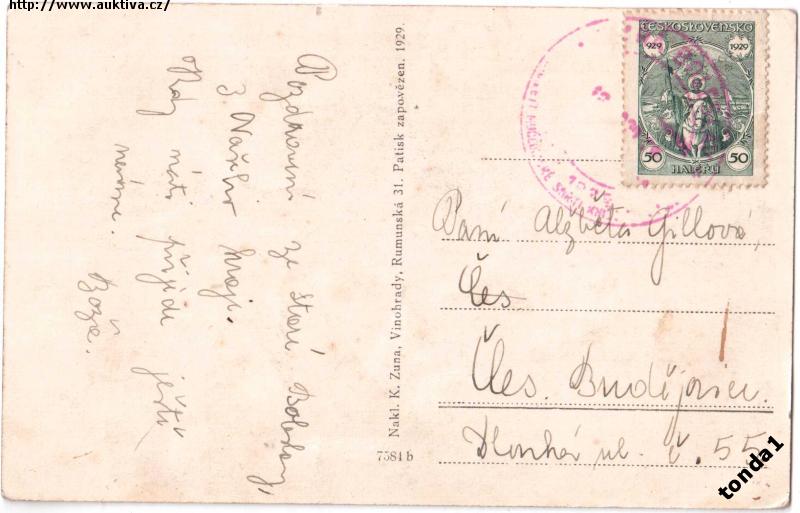 http://www.auktiva.cz/
Pozdravení ze Staré Boleslavi,
z Našeho kraje.
Kdy máti přijde ještě
nevíme.
Boža.
Nakl. K. Zuna, Vinohrady, Rumunská 31. Patisk zapovězen. 1929.
7584 b
ČESKOSLOVENSKO
929 1929
50 50
HALÉŘŮ
Paní Alžběta Gillová,
Čes
Čes. Budějovice.
Dlouhá ul. č. 55
tonda1